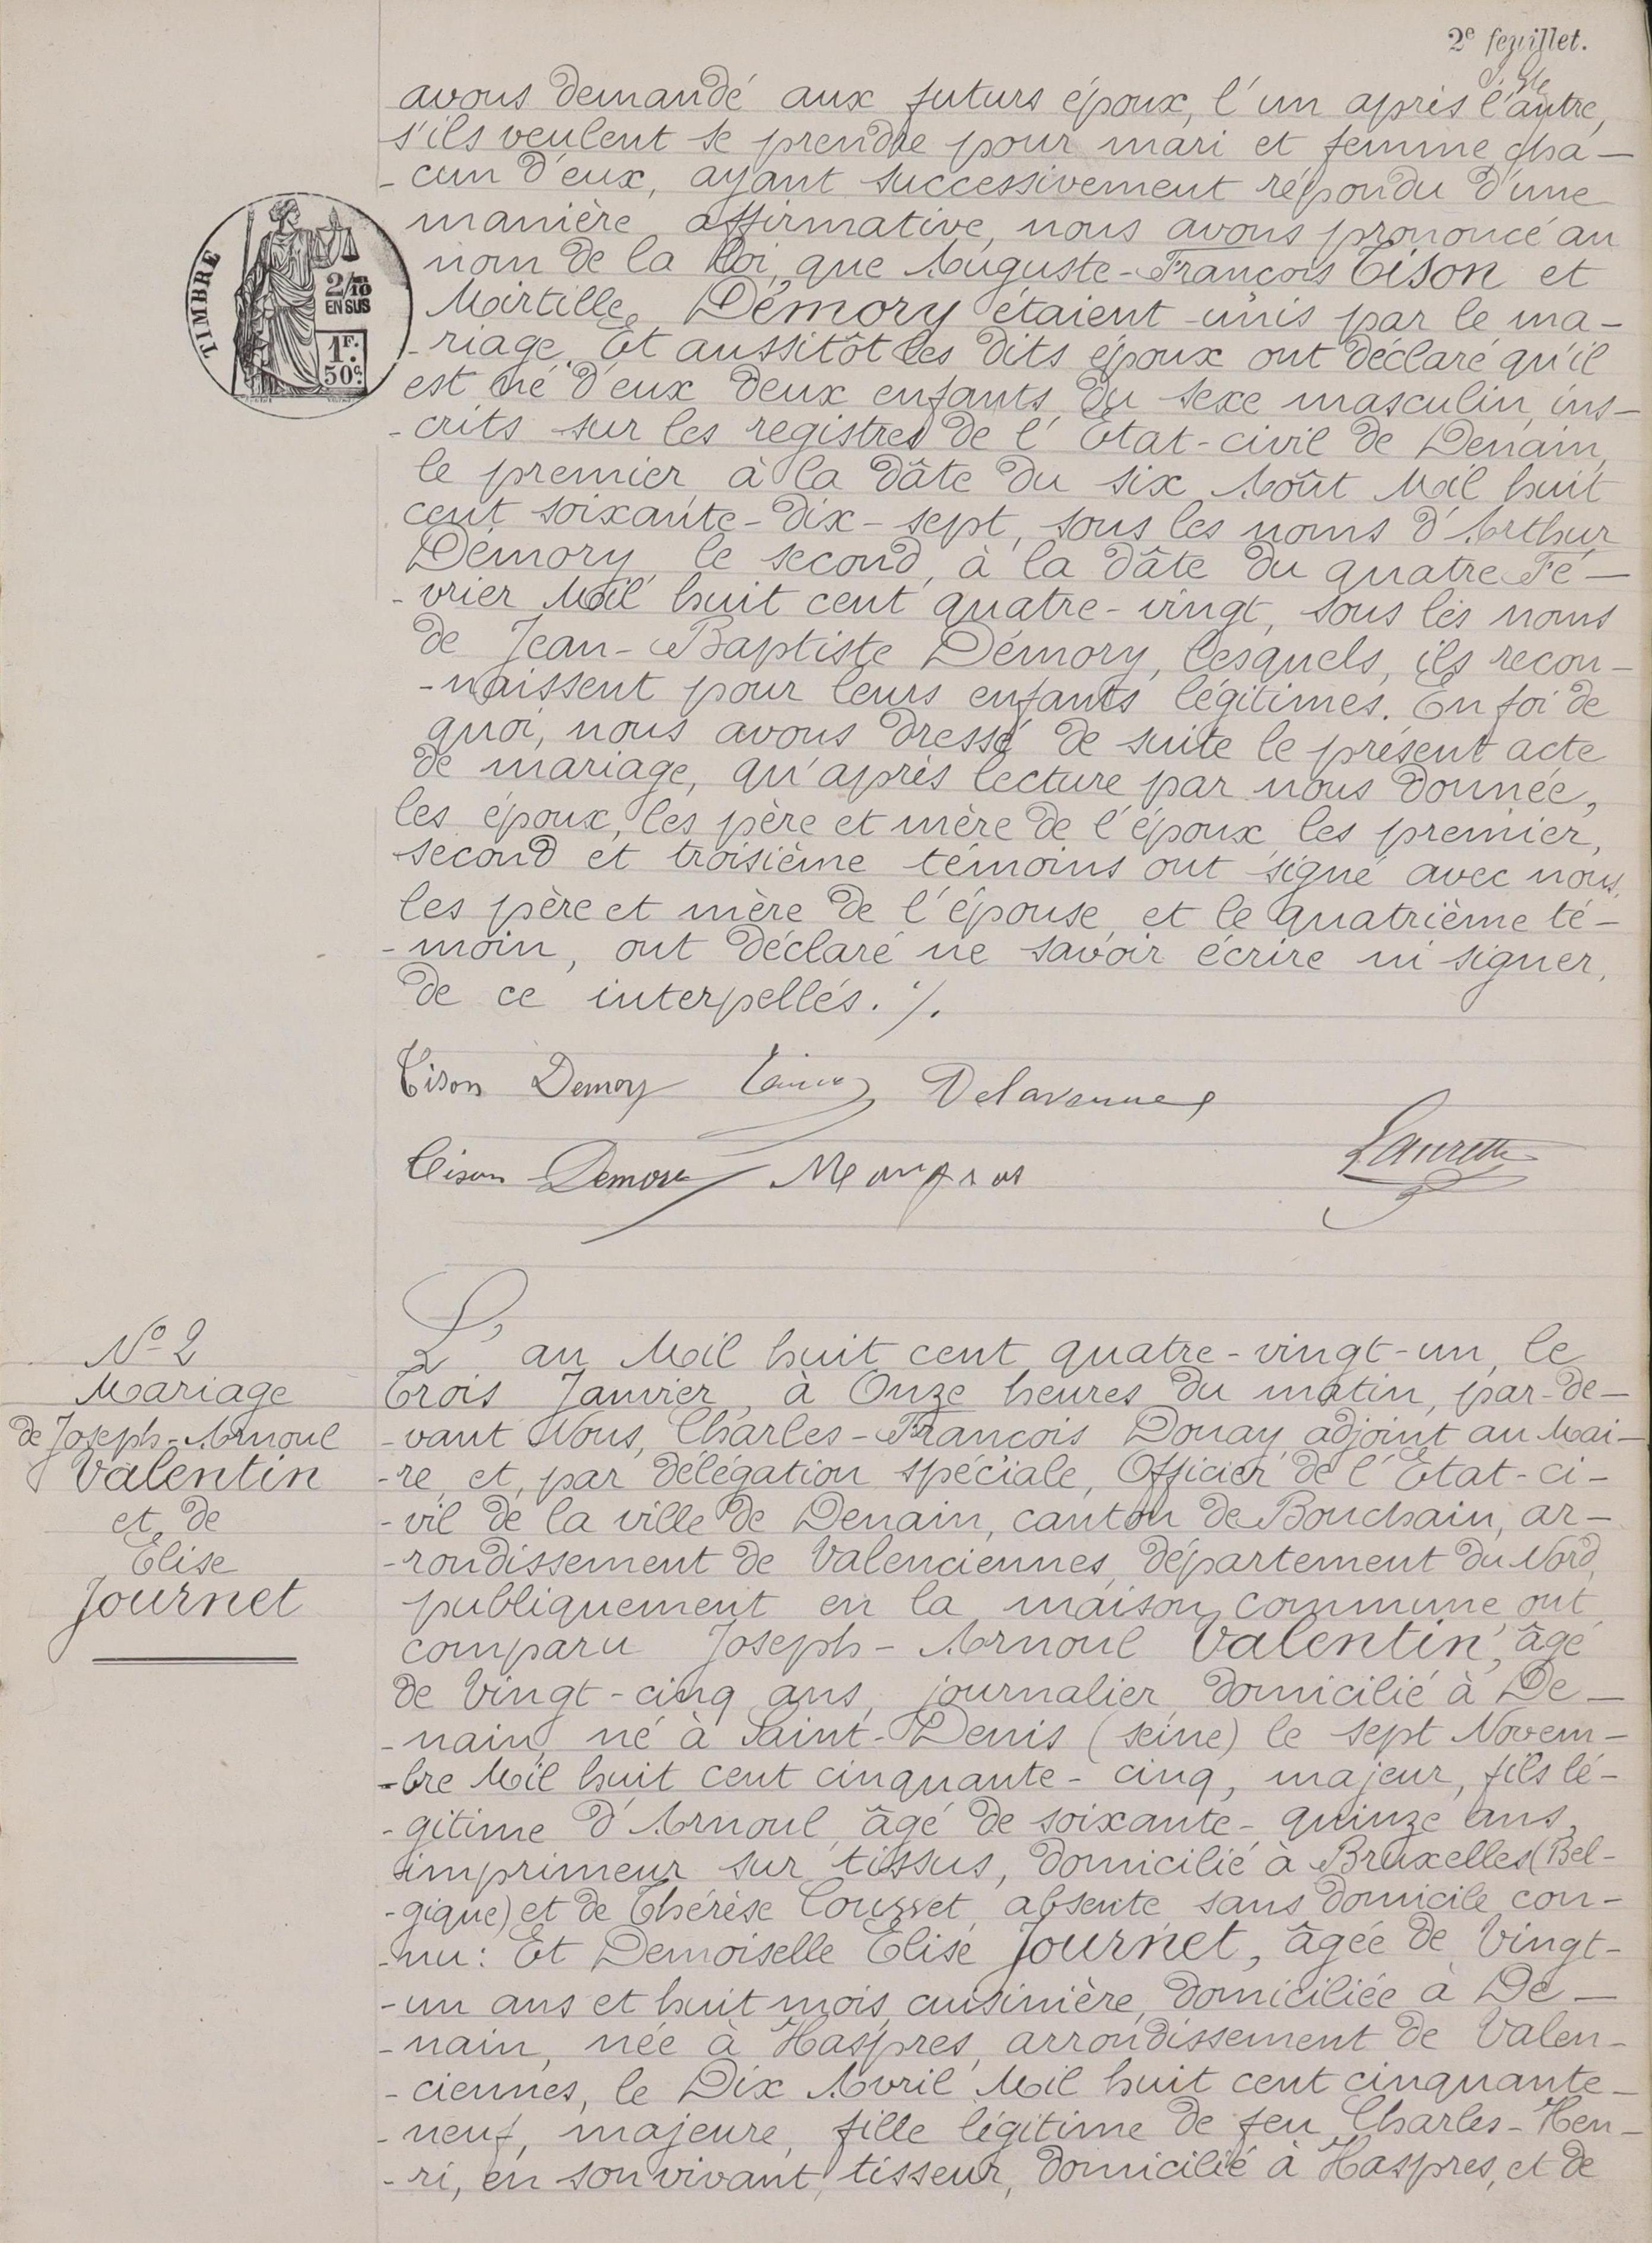 2e feuillet.
avons demandé aux futurs époux, l'un après l'autre,
s'ils veulent se prendre pour mari et femme, cha-
-cun d'eux, ayant successivement répondu d'une
manière affirmative, nous avons prononcé au
nom de la Loi, que Auguste-François Tison et
Mirtille Démory étaient unis par le ma-
-riage. Et aussitôt les dits époux ont déclaré qu'il
est né d'eux deux enfants du sexe masculin, ins-
-crits sur les registres de l'Etat-civil de Denain,
le premier, à la dâte du six Août Mil huit
cent soixante-dix-sept, sous les noms d'Arthur
Démory, le second, à la dâte du quatre Fé-
-vrier Mil huit cent quatre-vingt, sous les noms
de Jean-Baptiste Démory, lesquels, ils recon-
-naissent pour leurs enfants légitimes. En foi de
quoi, nous avons dressé de suite le présent acte
de mariage, qu'après lecture par nous donnée,
les époux, les père et mère de l'époux, les premier,
second et troisième témoins ont signé avec nous,
les père et mère de l'épouse, et le quatrième té-
-moin, ont déclaré ne savoir écrire ni signer,
de ce interpellés. ./.
TIMBRE
2/10 EN SUS
1F. 50c.
Tison Demory Delavenne
Tison Demory
Laurette
No 2
Mariage
de Joseph-Arnoul
Valentin
et de
Elise
Journet
L'an Mil huit cent quatre-vingt-un, le
Trois Janvier, à Onze heures du matin, par-de-
-vant Nous, Charles-François Douay, adjoint au Mai-
-re, et, par délégation spéciale, Officier de l'Etat-ci-
-vil de la ville de Denain, canton de Bouchain, ar-
-rondissement de Valenciennes, département du Nord,
publiquement en la maison commune ont
comparu Joseph-Arnoul Valentin, âgé
de Vingt-cinq ans, journalier, domicilié à De-
-nain, né à Saint-Denis (seine) le sept Novem-
-bre Mil huit cent cinquante-cinq, majeur, fils lé-
-gitime d'Arnoul, âgé de soixante-quinze ans,
imprimeur sur tissus, domicilié à Bruxelles (Bel-
-gique) et de Thérèse absente sans domicile con-
-nu: Et Demoiselle Elise Journet, âgée de Vingt-
-un ans et huit mois, cuisinière, domiciliée à De-
-nain, née à Haspres, arrondissement de Valen-
-ciennes, le Dix Avril Mil huit cent cinquante-
-neuf, majeure, fille légitime de feu Charles-Hen-
-ri, en son vivant, tisseur, domicilié à Haspres, et de